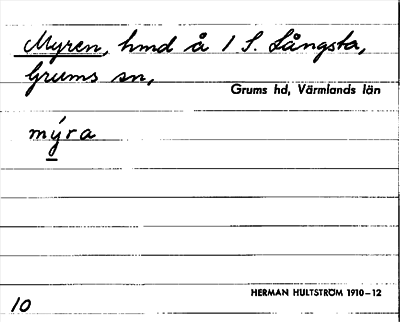 Myren, hmd å 1 S. Långsta,
Grums sn,
Grums hd, Värmlands län
mýra
HERMAN HULTSTRÖM 1910–12
10